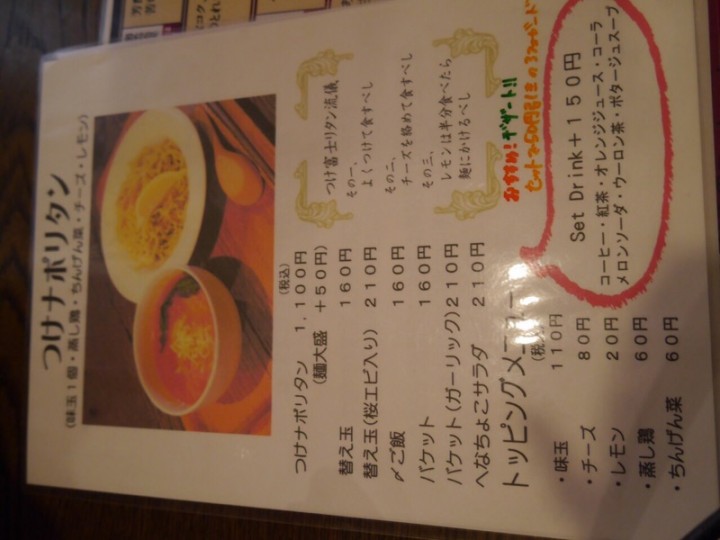 つけナポリタン
(味玉1個・蒸し鶏・ちんげん菜・チーズ・レモン)
つけ富士リタン流儀
その一、
よくつけて食すべし
その二、
チーズを絡めて食すべし
その三、
レモンは半分食べたら
麺にかけるべし
(税込)
つけナポリタン 1,100円
(麺大盛 +50円)
替え玉 160円
替え玉(桜エビ入り) 210円
〆ご飯 160円
バケット 160円
バケット(ガーリック)210円
へなちょこサラダ 210円
トッピングメニュー
(税込)
・味玉 110円
・チーズ 80円
・レモン 20円
・蒸し鶏 60円
・ちんげん菜 60円
おすすめ!デザート!!
Set Drink+150円
コーヒー・紅茶・オレンジジュース・コーラ
メロンソーダ・ウーロン茶・ポタージュスープ